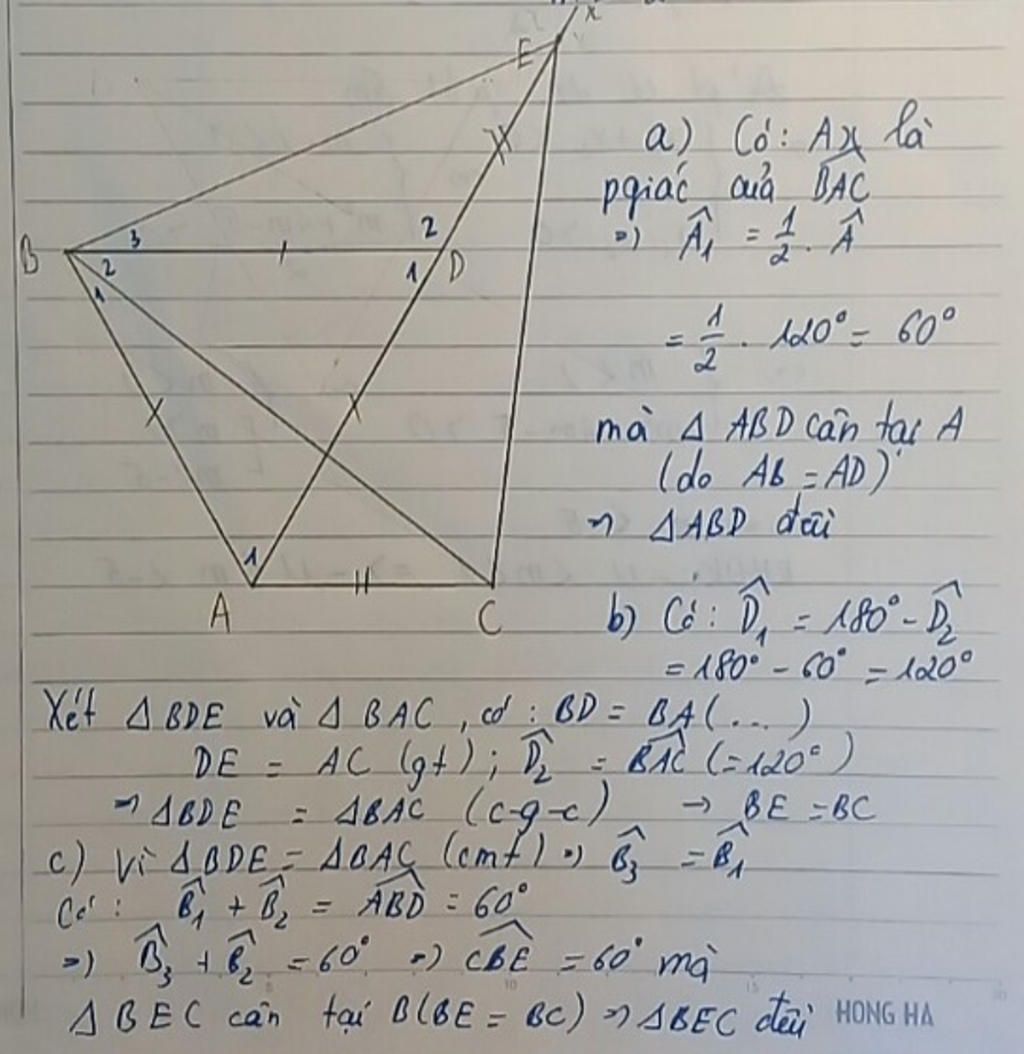 x
E
a) Có: Ax là
pgiác của \widehat{BAC}
=) \widehat{A}_1 = \frac{1}{2} . \widehat{A}
= \frac{1}{2} . 120° = 60°
B 3 2 1 2 1 D
mà Δ ABD cân tại A
(do AB = AD)
=) Δ ABD đều
1
A C
b) Có: \widehat{D}_1 = 180° - \widehat{D}_2
= 180° - 60° = 120°
Xét Δ BDE và Δ BAC, có: BD = BA (...)
DE = AC (gt); \widehat{D}_2 = \widehat{BAC} (=120°)
=) Δ BDE = Δ BAC (c-g-c) → BE = BC
c) Vì Δ BDE = Δ BAC (cmt) =) \widehat{B}_3 = \widehat{B}_1
Có: \widehat{B}_1 + \widehat{B}_2 = \widehat{ABD} = 60°
=) \widehat{B}_3 + \widehat{B}_2 = 60° =) \widehat{CBE} = 60° mà
Δ BEC cân tại B (BE = BC) =) Δ BEC đều HONG HA